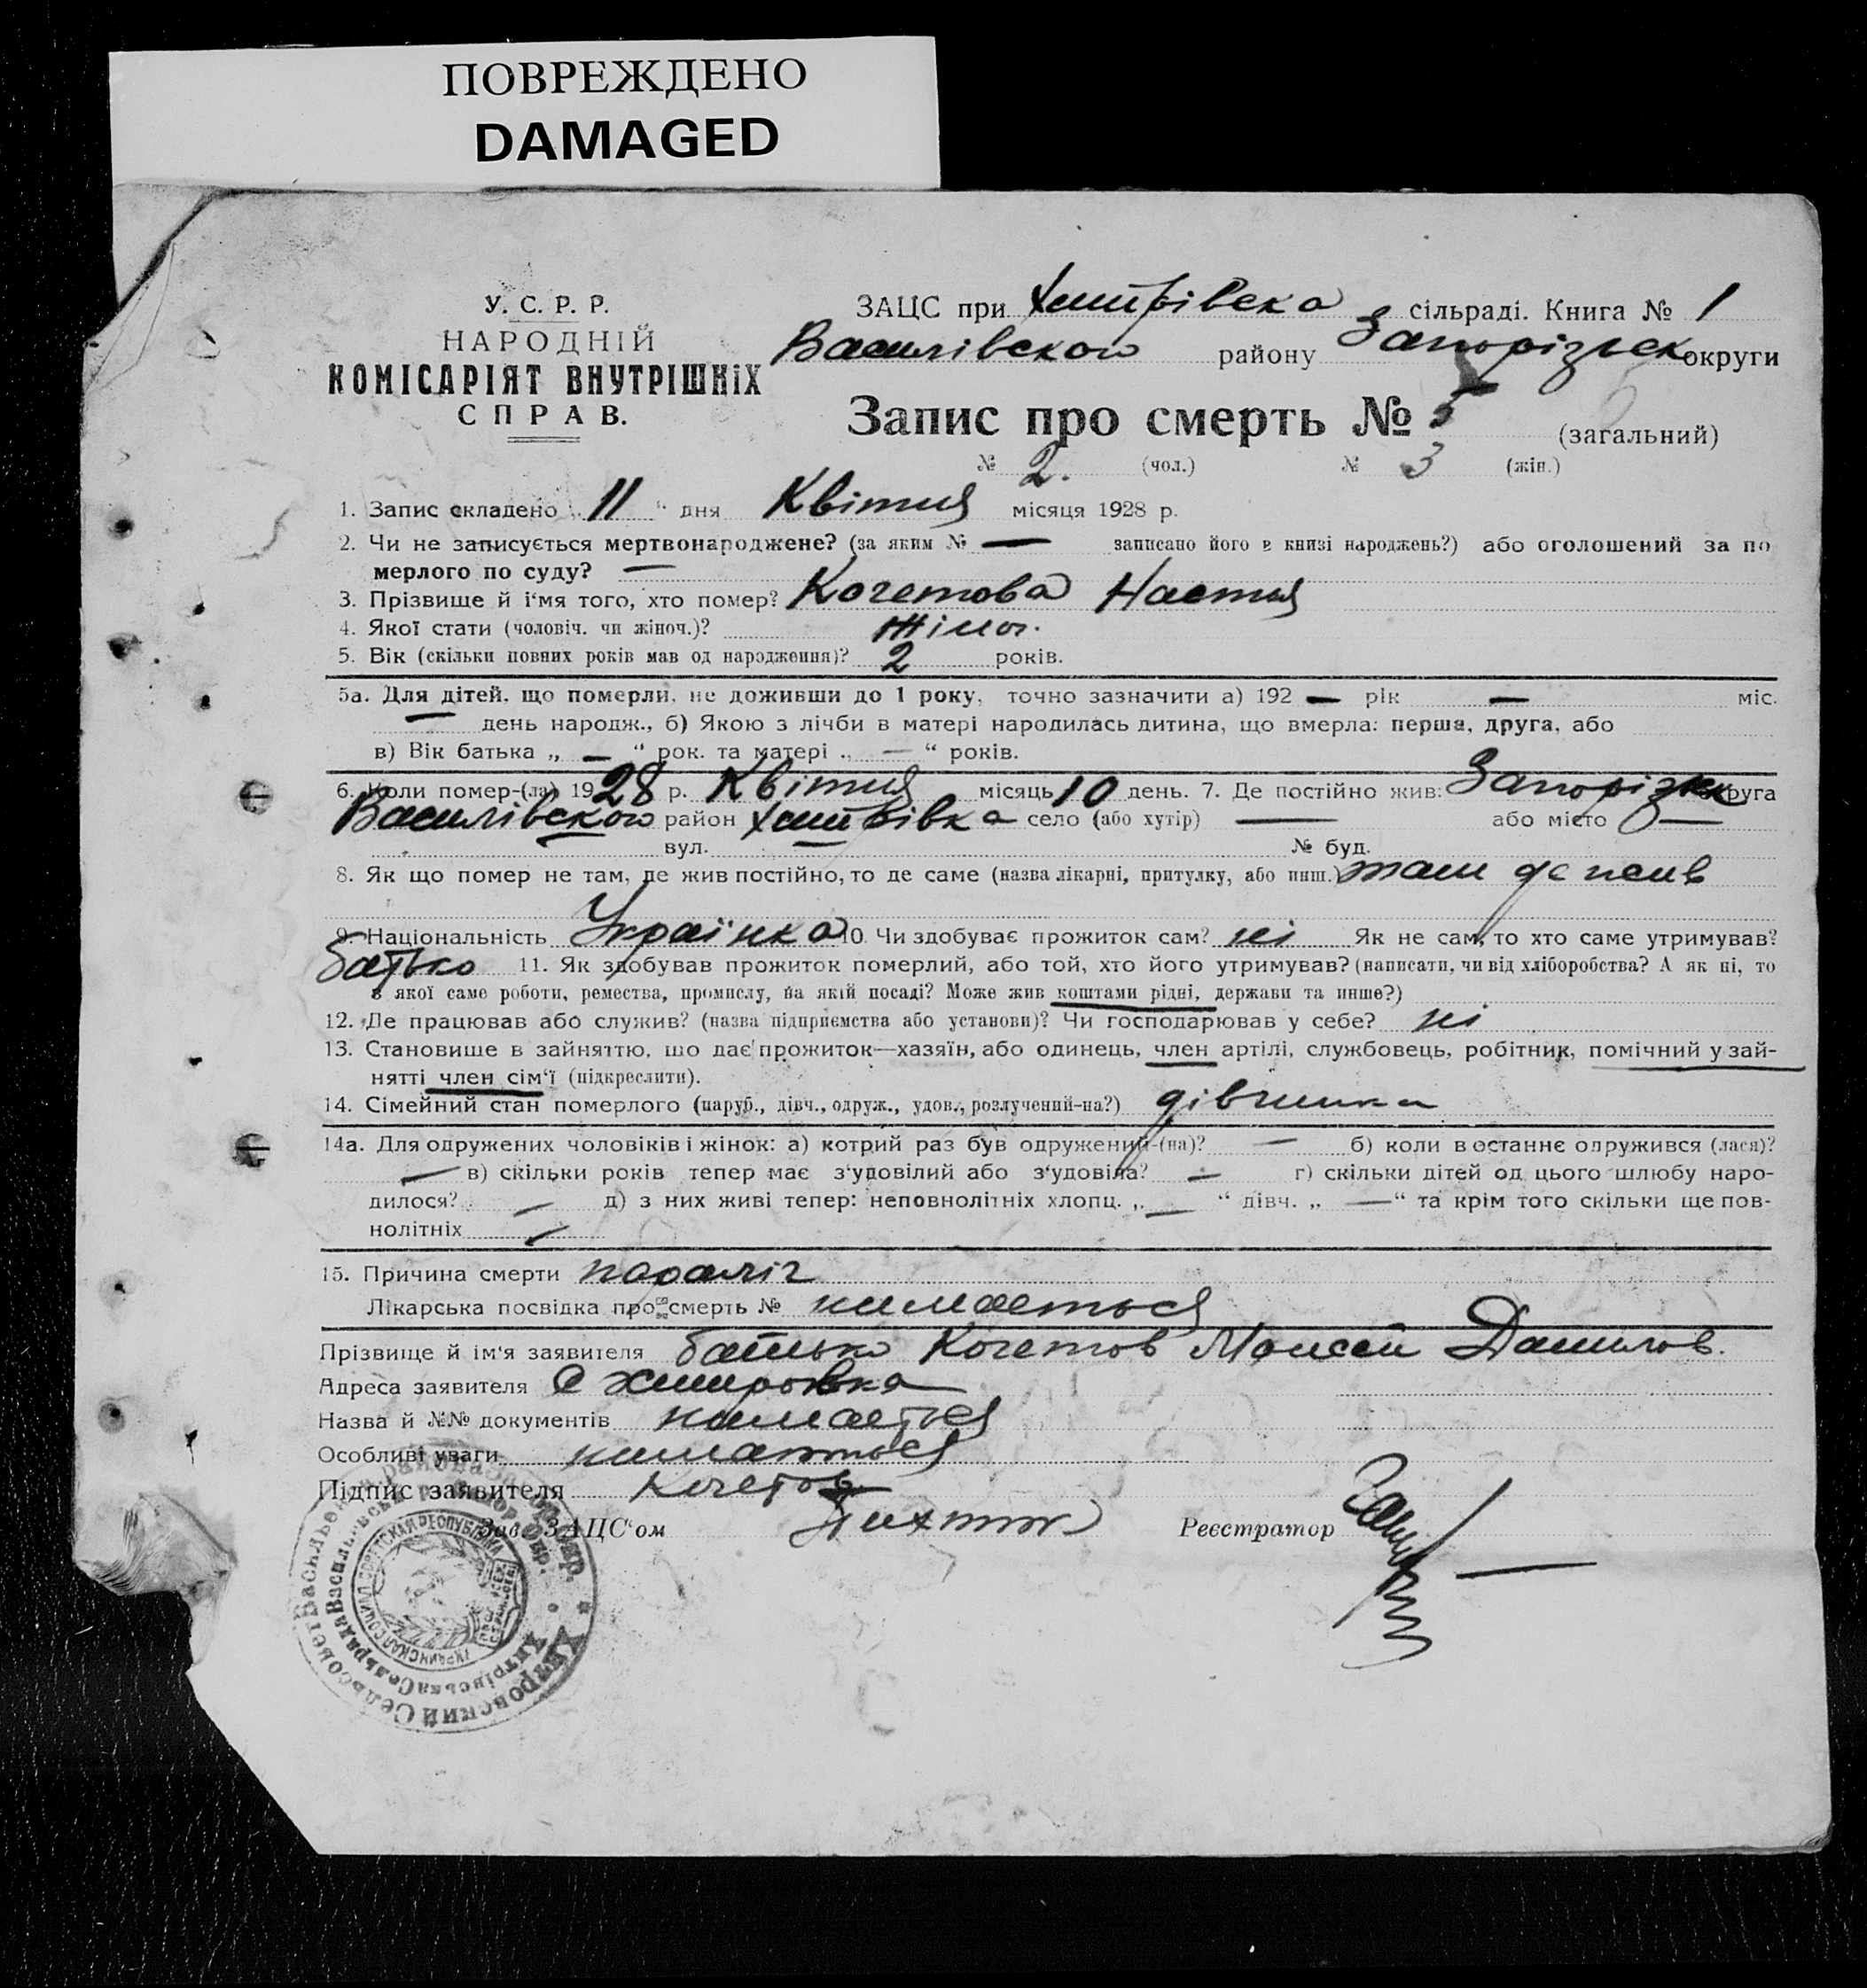 ПОВРЕЖДЕНО
DAMAGED
У. С. Р. Р.
НАРОДНІЙ
КОМІСАРІЯТ ВНУТРІШНІХ
СПРАВ.
ЗАЦС при Хитрівска сільраді. Книга № 1
Василівского району Запорізьск округи
Запис про смерть № 5 (загальний)
№ 2. (чол.) № 3 (жін.)
1. Запис складено „ 11 “ дня Квітня місяця 1928 р.
2. Чи не записується мертвонароджене? (за яким № — записано його в книзі народжень?) або оголошений за по
мерлого по суду? —
3. Прізвище й і'мя того, хто помер? Кочетова Настя
4. Якої стати (чоловіч. чи жіноч.)? жіноч.
5. Вік (скільки повних років мав од народження)? 2 років.
5а. Для дітей, що померли, не доживши до 1 року, точно зазначити а) 192 — рік — міс.
— день народж., б) Якою з лічби в матері народилась дитина, що вмерла: перша, друга, або
в) Вік батька „ — “ рок. та матері „ — “ років.
6. Коли помер-(ла) 1928 р. Квітня місяць 10 день. 7. Де постійно жив: Запорізьк округа
Василівского район Хитрівка село (або хутір) — або місто —
вул. — № буд.
8. Як що помер не там, де жив постійно, то де саме (назва лікарні, притулку, або инш.) там де
9. Національність Українка 10. Чи здобуває прожиток сам? ні Як не сам, то хто саме утримував?
батько 11. Як здобував прожиток померлий, або той, хто його утримував? (написати, чи від хліборобства? А як ні, то
з якої саме роботи, ремества, промислу, на якій посаді? Може жив коштами рідні, держави та инше?)
12. Де працював або служив? (назва підприємства або установи)? Чи господарював у себе? ні
13. Становище в зайняттю, що дає прожиток—хазяїн, або одинець, член артілі, службовець, робітник, помічний у зай-
нятті член сім'ї (підкреслити).
14. Сімейний стан померлого (паруб., дівч., одруж., удов., розлучений-на?) дівчинка
14а. Для одружених чоловіків і жінок: а) котрий раз був одружений-(на)? — б) коли востаннє одружився (лася)?
— в) скільки років тепер має з'удовілий або з'удовіла? — г) скільки дітей од цього шлюбу наро-
дилося? — д) з них живі тепер: неповнолітніх хлопц. „ — “ дівч. „ — “ та крім того скільки ще пов-
нолітніх —
15. Причина смерти параліч
Лікарська посвідка про смерть № нимаеться
Прізвище й ім'я заявителя батько Кочетов Моисей Данилов.
Адреса заявителя С Хитровка
Назва й №№ документів нимаеться
Особливі уваги нимаеться
Підпис заявителя Кочетов
Зав. „ЗАЦС“ом Реєстратор
Хитровский Сельсовет Васильевск района Запор. Окр.
Хитрівська Сельрада Васильівськ р. Запор. Окр.
УКРАИНСКАЯ СОЦИАЛ. СОВЕТСКАЯ РЕСПУБЛИКА